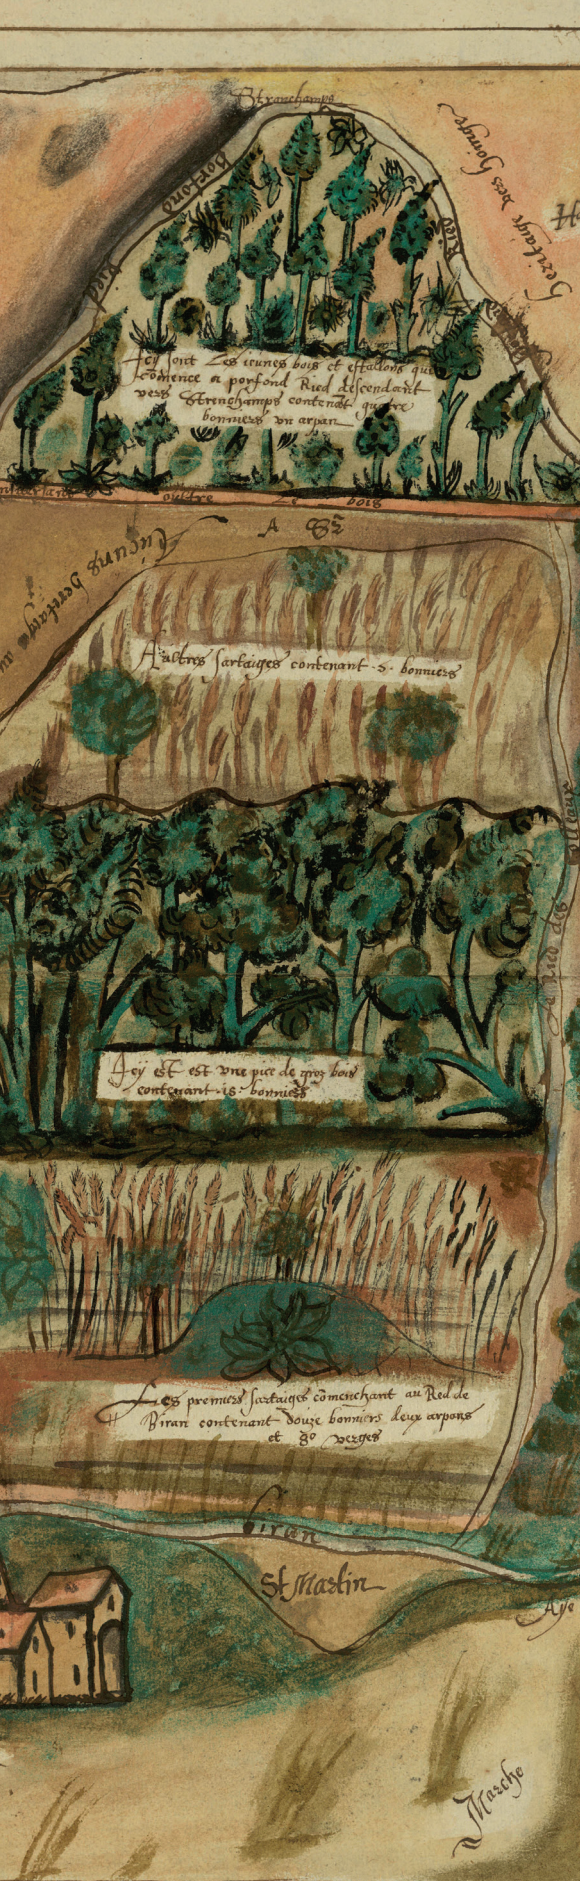 Strenchamps
Porfond
Ried
Ried
Heritaige vers hoinge
Icy sont Les ieunes bois et estallons que
cõmence a porfond Ried descendant
vers Strenchamps contenãt quattre
bonniers vn arpan
oultre Le bois
A S
Aucuns heritaige au
Aultres sartaiges contenant 2 bonniers
Le Ried des
Icÿ est est vne pice de groz bois
contenant 18 bonniers
Les premiers sartaiges cõmenchant au Red de
Biran contenant douze bonniers deux arpans
et 80 verges
biran
St Martin
Aÿe
Marche